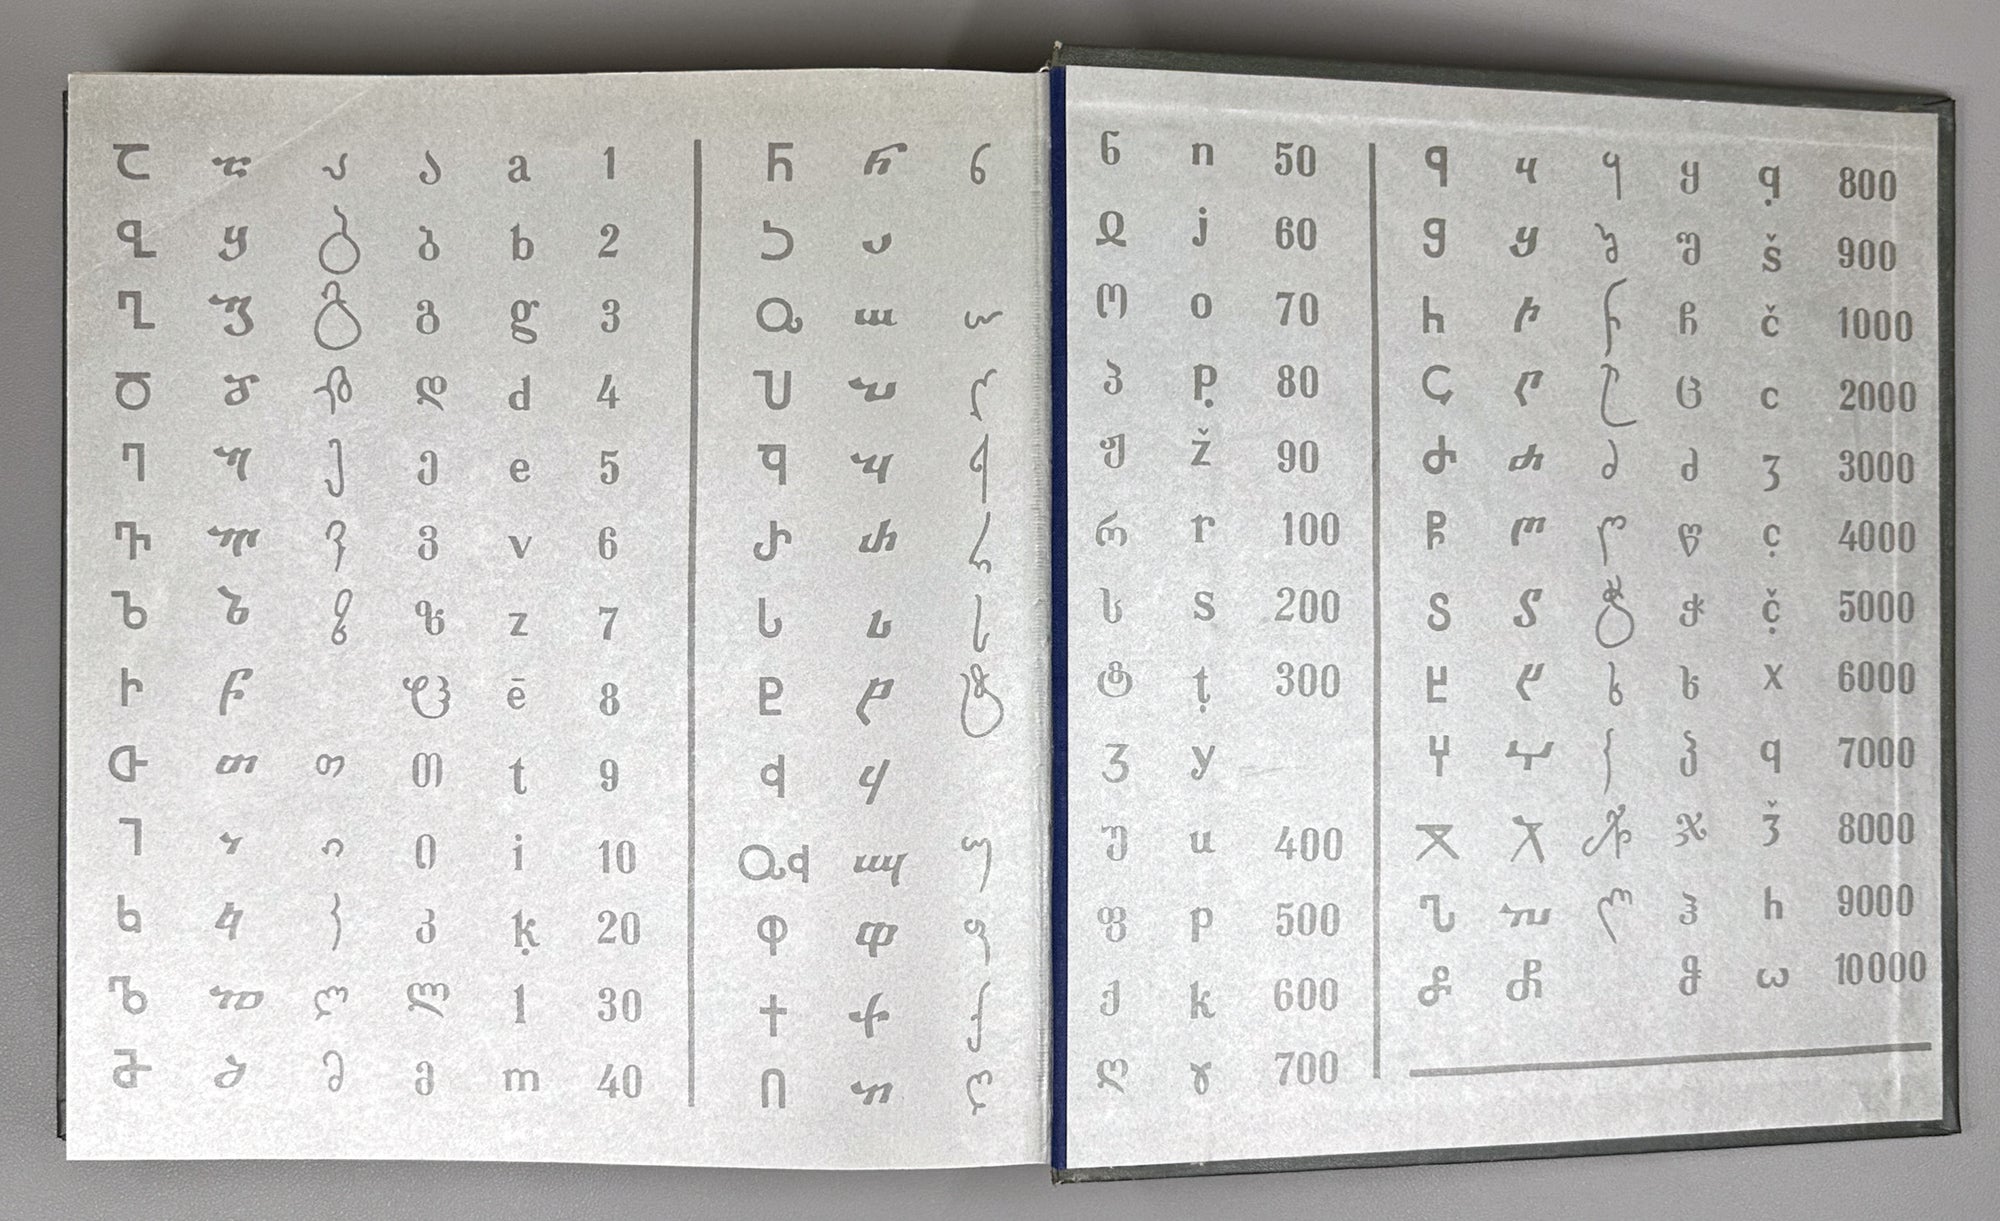 Ⴀ ⴀ ა ა a 1
Ⴁ ⴁ ბ ბ b 2
Ⴂ ⴂ გ გ g 3
Ⴃ ⴃ დ დ d 4
Ⴄ ⴄ ე ე e 5
Ⴅ ⴅ ვ ვ v 6
Ⴆ ⴆ ზ ზ z 7
Ⴡ ⴡ ჱ ē 8
Ⴇ ⴇ თ თ t 9
Ⴈ ⴈ ი ი i 10
Ⴉ ⴉ კ კ ḳ 20
Ⴊ ⴊ ლ ლ l 30
Ⴋ ⴋ მ მ m 40
Ⴌ ⴌ ნ ნ n 50
Ⴢ ⴢ ჲ j 60
Ⴍ ⴍ ო ო o 70
Ⴎ ⴎ პ პ p̣ 80
Ⴏ ⴏ ჟ ჟ ž 90
Ⴐ ⴐ რ რ r 100
Ⴑ ⴑ ს ს s 200
Ⴒ ⴒ ტ ტ ṭ 300
Ⴣ ⴣ ჳ y
ႭჃ ⴍⴣ უ უ u 400
Ⴔ ⴔ ფ ფ p 500
Ⴕ ⴕ ქ ქ k 600
Ⴖ ⴖ ღ ღ ɣ 700
Ⴗ ⴗ ყ ყ q̣ 800
Ⴘ ⴘ შ შ š 900
Ⴙ ⴙ ჩ ჩ č 1000
Ⴚ ⴚ ც ც c 2000
Ⴛ ⴛ ძ ძ ʒ 3000
Ⴜ ⴜ წ წ c̣ 4000
Ⴝ ⴝ ჭ ჭ č̣ 5000
Ⴞ ⴞ ხ ხ x 6000
Ⴤ ⴤ ჴ ჴ q 7000
Ⴟ ⴟ ჯ ჯ ǯ 8000
Ⴠ ⴠ ჰ ჰ h 9000
Ⴥ ⴥ ჵ ω 10000